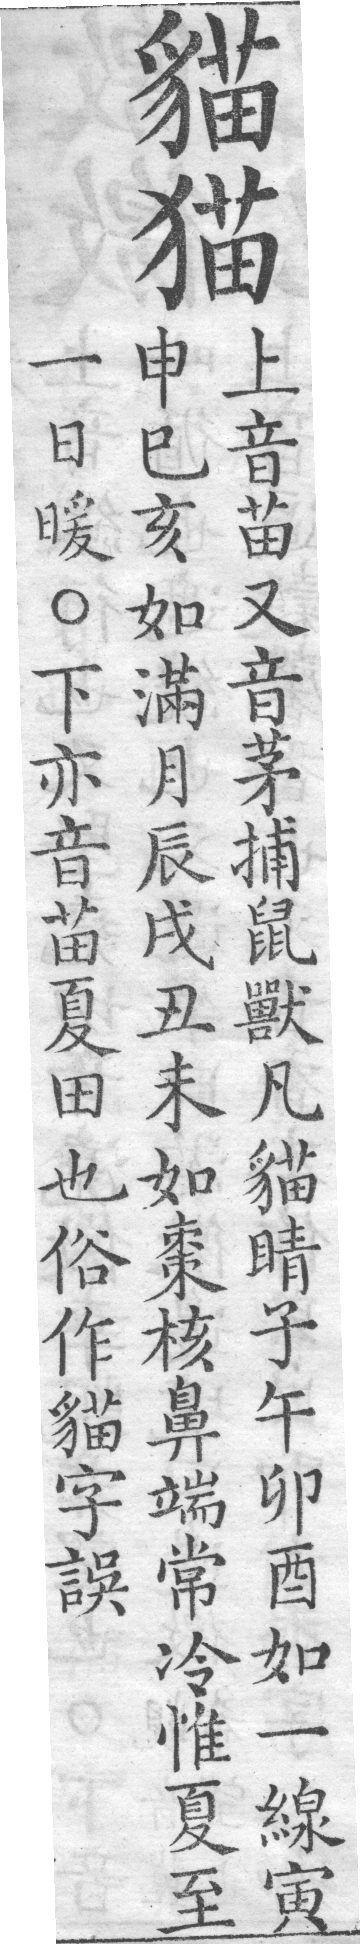 貓猫
上音苗又音茅捕鼠獸凡貓睛子午卯酉如一線寅
申巳亥如滿月辰戌丑未如棗核鼻端常冷惟夏至
一日暖○下亦音苗夏田也俗作貓字誤